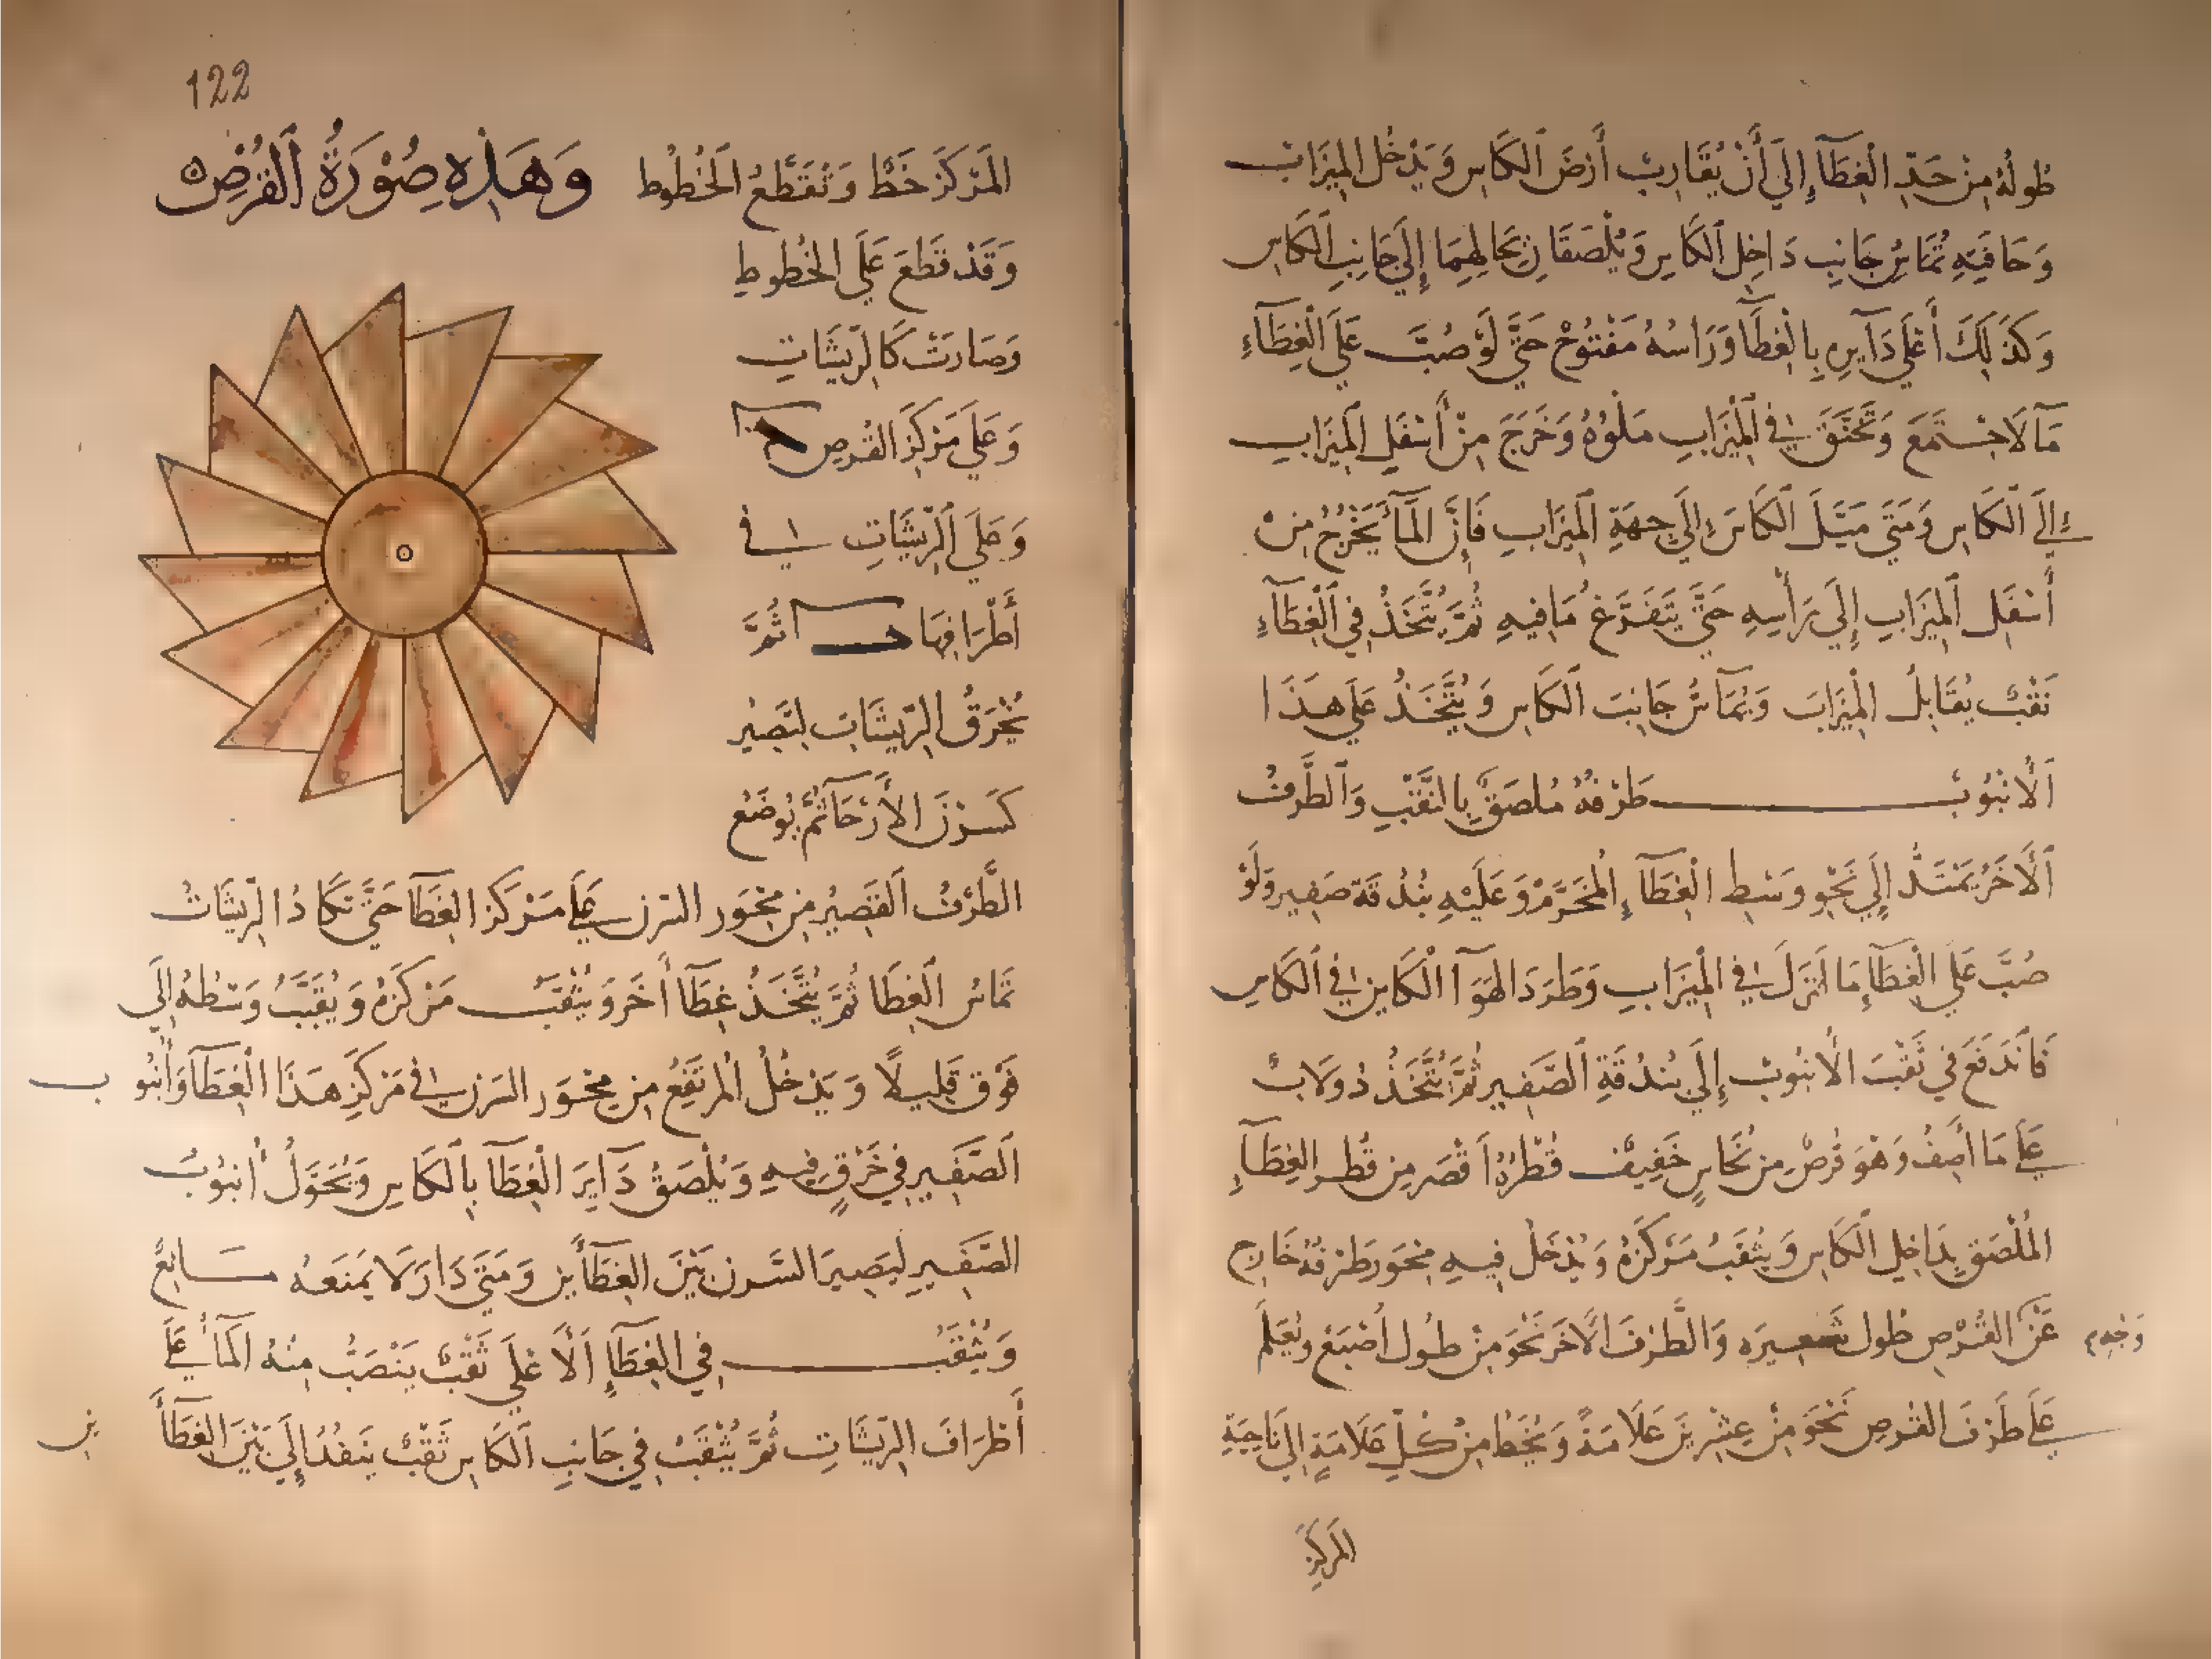 طُولُهُ مِنْ حَدِّ الْغِطَآءِ إِلَى أَنْ يُقَارِبَ أَرْضَ الْكَاسِ وَيُدْخَلُ الْمِيزَابُ
وَحَافَتَيْهِ تُمَاسُّ جَانِبِ دَاخِلِ الْكَاسِ وَيُلْصَقَانِ بِحَالِهِمَا إِلَى جَانِبِ الْكَاسِ
وَكَذَلِكَ أَعْلَى دَآيِرِهِ بِالْغِطَآ وَرَاسُهُ مَفْتُوحٌ حَتَّى لَوْ صُبَّ عَلَى الْغِطَآءِ
مَآ لَاجْتَمَعَ وَتَحَقَّقَ فِي الْمِيزَابِ مَلْوُهُ وَخَرَجَ مِنْ أَسْفَلِ الْمِيزَابِ
إِلَى الْكَاسِ وَمَتَى مَيَّلَ الْكَاسَ إِلَى جِهَةِ الْمِيزَابِ فَإِنَّ الْمَآ يَخْرُجُ مِنْ
أَسْفَلِ الْمِيزَابِ إِلَى رَأْسِهِ حَتَّى يَتَفَرَّغَ مَا فِيهِ ثُمَّ يُتَّخَذُ فِي الْغِطَآءِ
نَقْبٌ يُقَابِلُ الْمِيزَابَ وَيُمَاسُّ جَانِبَ الْكَاسِ وَيُتَّخَذُ عَلَى هَذَا
الْأُنْبُوبُ طَرَفُهُ مُلْصَقٌ بِالنَّقْبِ وَالطَّرَفُ
الْآخَرُ يَمْتَدُّ إِلَى نَحْوِ وَسْطِ الْغِطَآءِ الْمُخَرَّمْ وَعَلَيْهِ بُنْدُقَةُ صَفِيرٍ وَلَوْ
صُبَّ عَلَى الْغِطَآءِ مَا لَنَزَلَ فِي الْمِيزَابِ وَطَرَدَ الْهَوَآ الْكَايِنَ فِي الْكَاسِ
فَانْدَفَعَ فِي ثَقْبِ الْأُنْبُوبِ إِلَى بُنْدُقَةِ الصَّفِيرِ ثُمَّ يُتَّخَذُ دُولَابٌ
عَلَى مَا أَصِفُ وَهُوَ قُرْصٌ مِنْ نُحَاسٍ خَفِيفٌ قُطْرُهُ أَقْصَرُ مِنْ قُطْرِ الْغِطَآءِ
الْمُلْصَقِ بِدَاخِلِ الْكَاسِ وَيُثْقَبُ مَرْكَزُهُ وَيُدْخَلُ فِيهِ مِحْوَرٌ طَرَفُهُ خَارِجٌ
عَنِ الْقُرْصِ طُولَ شَعِيرَه وَالطَّرَفَ الْآخَرَ نَحْوَ مِنْ طُولِ أُصْبَعْ وَيُعَلَّمُ
عَلَى طَرَفِ الْقُرْصِ نَحْوَ مِنْ عِشْرِينَ عَلَامَةً وَيُخَطُّ مِنْ كُلِّ عَلَامَةٍ إِلَى نَاحِيَةِ
المَرْكَزِ
122
الْمَرْكَزِ خَطٌّ وَتُقَطَّعُ الْخُطُوطُ
وَهَذِهِ صُوْرَةُ الْقُرْصِ
وَقَدْ قَطَعَ عَلَى الْخُطُوطِ
وَصَارَتْ كَالرِّيشَاتِ
وَعَلَى مَرْكَزِ الْقُرْصِ
وَعَلَى الرِّيشَاتِ فِي
أَطْرَافِهَا ثُمَّ
تُخْرَقُ الرِّيشَاتُ لِتَصِيرَ
كَسَرْنِ الْأَرْحَآ ثُمَّ يُوضَعُ
الطَّرَفُ الْقَصِيرُ مِنْ مِحْوَرِ السَّرَنِ عَلَى مَرْكَزِ الْغِطَآ حَتَّى تَكَادُ الرِّيشَاتُ
تَمَاسُ الْغِطَا ثُمَّ يُتَّخَذُ غِطَآ أَخَرَ وَيُثْقَبُ مَرْكَزُهُ وَيُقَبَّبُ وَسْطُهُ إِلَى
فَوْقِ قَلِيلًا وَيَدْخُلُ الْمُرْتَفِعُ مِنْ مِحْوَرِ السَّرَنِ فِي مَرْكَزِ هَذَا الْغِطَآ وَأُنْبُوبِ
الصَّفِيرِ فِي خَرْقٍ فِيهِ وَيُلْصَقُ دَآيِرَ الْغِطَآ بِالْكَاسِ وَيُحَوَّلُ أُنْبُوبُ
الصَّفِيرِ لِيَصِيرَ السَّرَنُ بَيْنَ الْغِطَآئَيْنِ وَمَتَى دَارَ لَا يَمْنَعُهُ مَانِعٌ
وَيُثْقَبُ فِي الْغِطَآءِ الْأَعْلَى ثَقْبٌ يَنْصَبُّ مِنْهُ الْمَآءُ عَلَى
أَطْرَافِ الرِّيشَاتِ ثُمَّ يُثْقَبُ فِي جَانِبِ الْكَاسِ ثَقْبٌ يَنْفُذُ إِلَى بَيْنَ الْغِطَآئَيْنِ